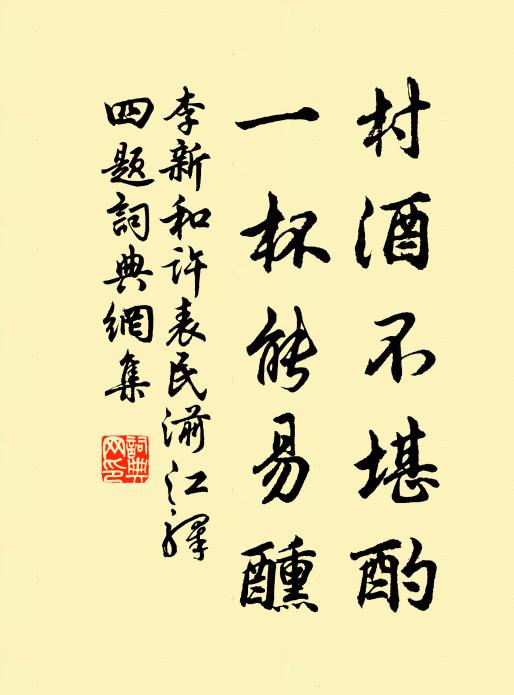 村酒不堪酌
一杯能易醺
李新和許表民湔江驛
四題詞典網集
詞典
网印